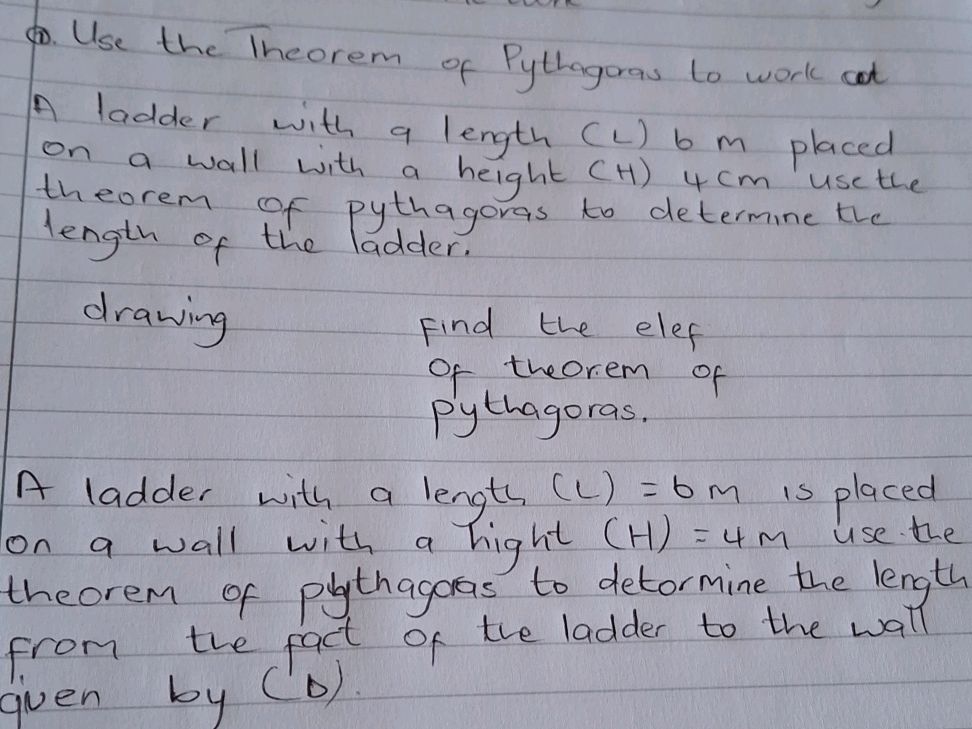 Use the Theorem of Pythagoras to work out
A ladder with a length (L) 6 m placed
on a wall with a height (H) 4cm use the
theorem of pythagoras to determine the
length of the ladder.
drawing
Find the elef
of theorem of
pythagoras.
A ladder with a length (L) = 6 m is placed
on a wall with a hight (H) = 4 M use the
theorem of pythagoras to detormine the length
from the fact of the ladder to the wall
given by (D).